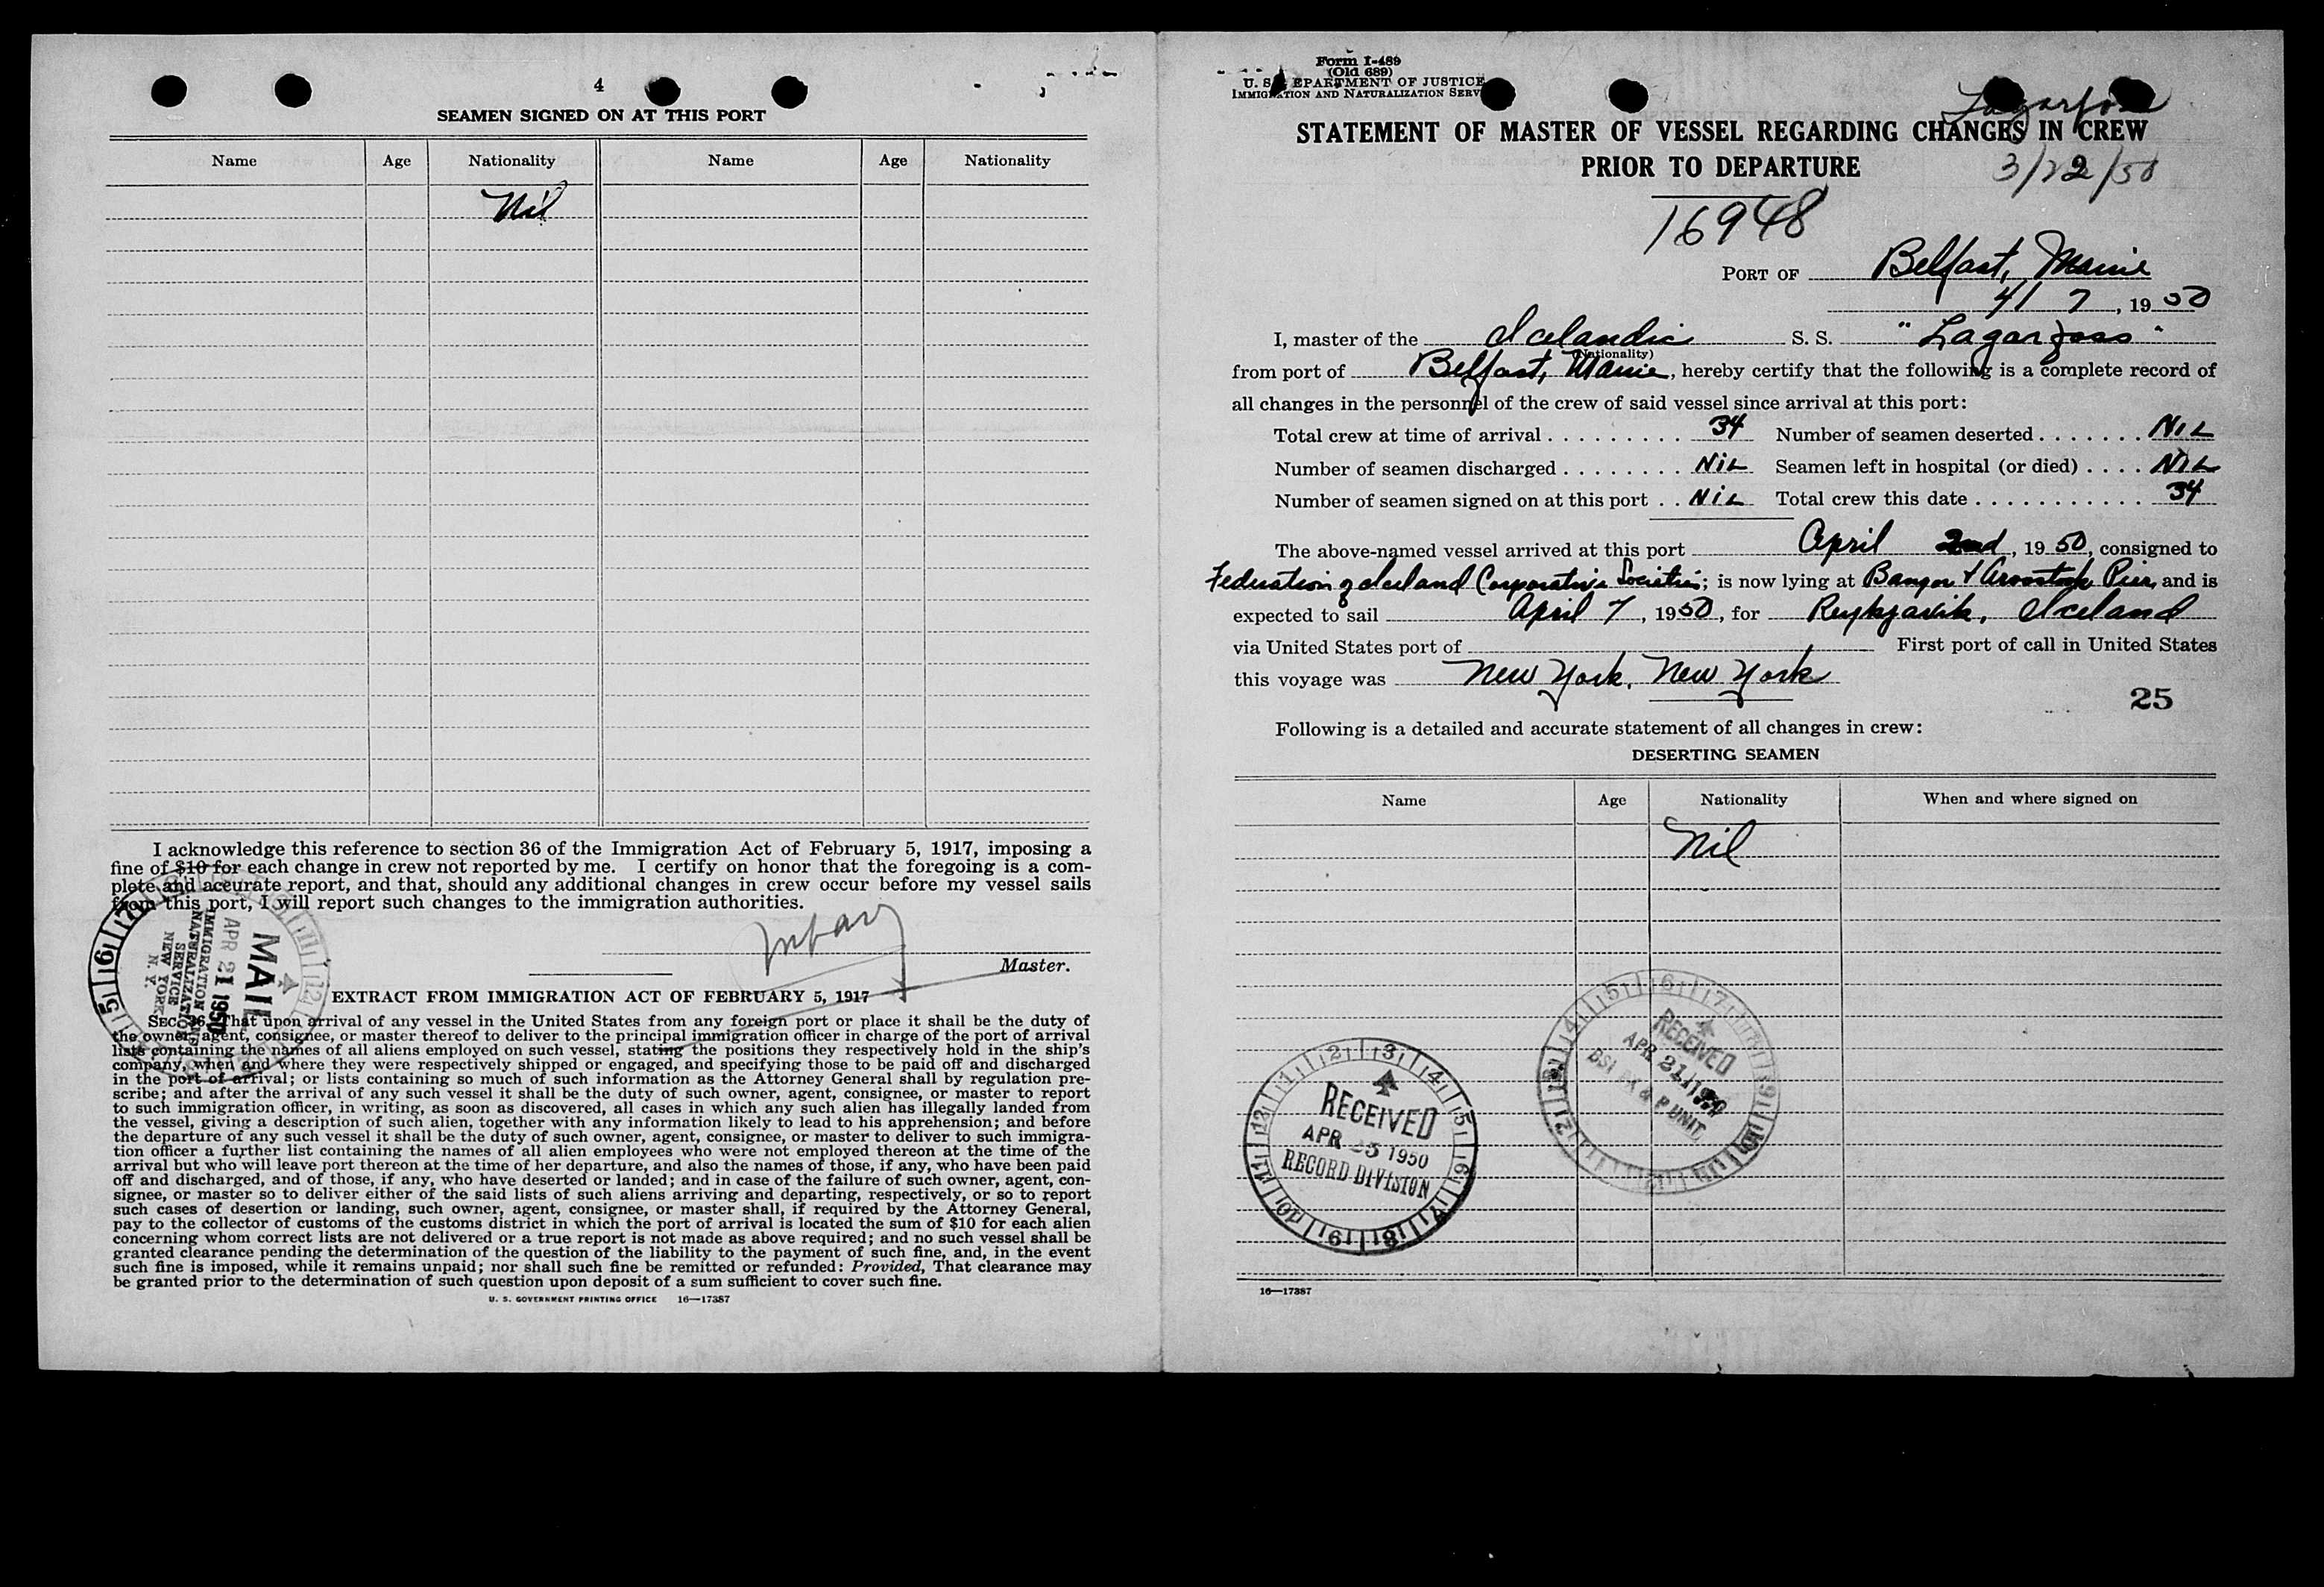 4
SEAMEN SIGNED ON AT THIS PORT
Name Age Nationality Name Age Nationality
Nil
I acknowledge this reference to section 36 of the Immigration Act of February 5, 1917, imposing a
fine of $10 for each change in crew not reported by me. I certify on honor that the foregoing is a com-
plete and accurate report, and that, should any additional changes in crew occur before my vessel sails
from this port, I will report such changes to the immigration authorities.
Master.
MAIL
APR 21 1950
IMMIGRATION AND
NATURALIZATION
SERVICE
NEW YORK
N. Y.
EXTRACT FROM IMMIGRATION ACT OF FEBRUARY 5, 1917
SEC. 36. That upon arrival of any vessel in the United States from any foreign port or place it shall be the duty of
the owner, agent, consignee, or master thereof to deliver to the principal immigration officer in charge of the port of arrival
lists containing the names of all aliens employed on such vessel, stating the positions they respectively hold in the ship's
company, when and where they were respectively shipped or engaged, and specifying those to be paid off and discharged
in the port of arrival; or lists containing so much of such information as the Attorney General shall by regulation pre-
scribe; and after the arrival of any such vessel it shall be the duty of such owner, agent, consignee, or master to report
to such immigration officer, in writing, as soon as discovered, all cases in which any such alien has illegally landed from
the vessel, giving a description of such alien, together with any information likely to lead to his apprehension; and before
the departure of any such vessel it shall be the duty of such owner, agent, consignee, or master to deliver to such immigra-
tion officer a further list containing the names of all alien employees who were not employed thereon at the time of the
arrival but who will leave port thereon at the time of her departure, and also the names of those, if any, who have been paid
off and discharged, and of those, if any, who have deserted or landed; and in case of the failure of such owner, agent, con-
signee, or master so to deliver either of the said lists of such aliens arriving and departing, respectively, or so to report
such cases of desertion or landing, such owner, agent, consignee, or master shall, if required by the Attorney General,
pay to the collector of customs of the customs district in which the port of arrival is located the sum of $10 for each alien
concerning whom correct lists are not delivered or a true report is not made as above required; and no such vessel shall be
granted clearance pending the determination of the question of the liability to the payment of such fine, and, in the event
such fine is imposed, while it remains unpaid; nor shall such fine be remitted or refunded: Provided, That clearance may
be granted prior to the determination of such question upon deposit of a sum sufficient to cover such fine.
U. S. GOVERNMENT PRINTING OFFICE 16—17387
Form I-489
(Old 689)
U. S. DEPARTMENT OF JUSTICE
IMMIGRATION AND NATURALIZATION SERV
Lagarfoss
STATEMENT OF MASTER OF VESSEL REGARDING CHANGES IN CREW
PRIOR TO DEPARTURE
3/22/50
16948
PORT OF Belfast, Maine
4/ 7, 1950
I, master of the Icelandic S. S. "Lagarfoss"
(Nationality)
from port of Belfast, Maine, hereby certify that the following is a complete record of
all changes in the personnel of the crew of said vessel since arrival at this port:
Total crew at time of arrival . . . . . . . . . 34 Number of seamen deserted . . . . . . . NiL
Number of seamen discharged . . . . . . . . NiL Seamen left in hospital (or died) . . . . NiL
Number of seamen signed on at this port . . NiL Total crew this date . . . . . . . . . . . . 34
The above-named vessel arrived at this port April 2nd, 1950, consigned to
Federation of Iceland Corporative Societies; is now lying at Bangor & Aroostook Pier, and is
expected to sail April 7, 1950, for Reykjavik, Iceland
via United States port of First port of call in United States
this voyage was New York, New York
25
Following is a detailed and accurate statement of all changes in crew:
DESERTING SEAMEN
Name Age Nationality When and where signed on
Nil
RECEIVED
APR 21 1950
RECEIVED
APR 25 1950
RECORD DIVISION
16—17387